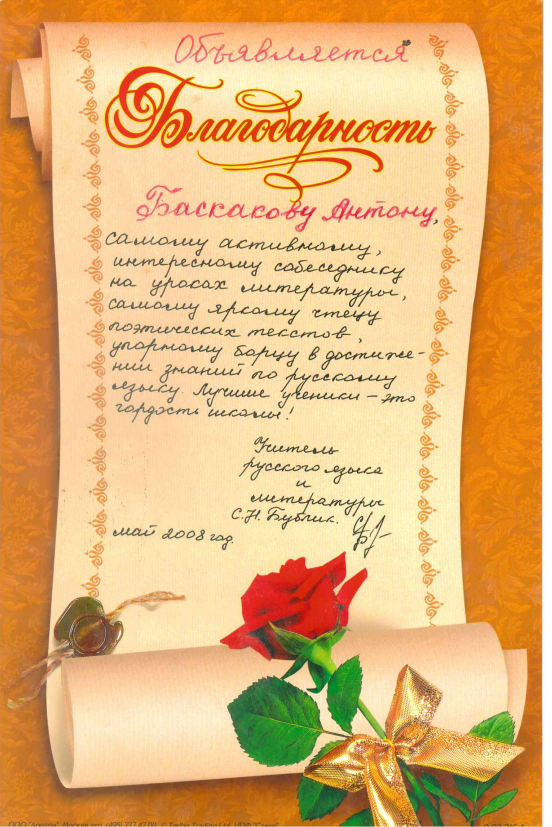 Объявляется
Благодарность
Баскакову Антону,
самому активному,
интересному собеседнику
на уроках литературы,
самому яркому чтецу
поэтических текстов,
упорному борцу в достиже-
нии знаний по русскому
языку. Лучшие ученики – это
гордость школы!
Учитель
русского языка
и
литературы
С.Н. Бублик.
май 2008 год.